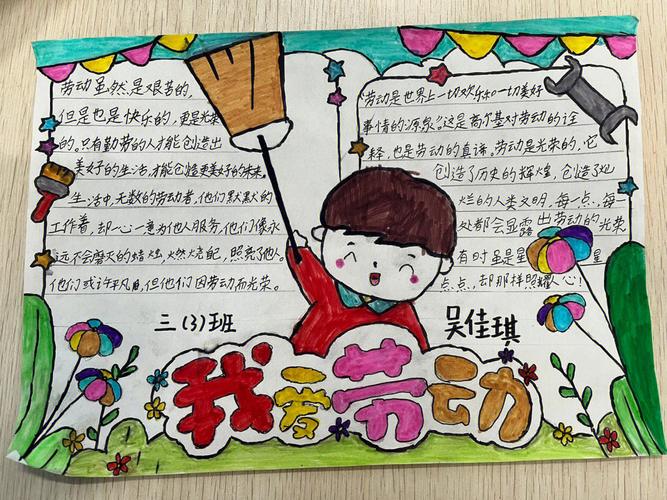 劳动虽然是艰苦的,
但是也是快乐的,更是光荣
的。只有勤劳的人才能创造出
美好的生活,才能创造更美好的未来。
生活中,无数的劳动者,他们默默的
工作着,却一心一意为他人服务,他们像永
远不会磨灭的蜡烛,燃烧自己,照亮了他人
他们或许平凡,但他们因劳动而光荣。
三(3)班
劳动是世界上一切欢乐和一切美好
事情的源泉。”这是高尔基对劳动的诠
释,也是劳动的真谛。劳动是光荣的,它
创造了历史的辉煌,创造了灿
烂的人类文明,每一点,每一
处都会显露出劳动的光荣
有时虽是星星
点点,却那样照耀人心!
吴佳琪
我爱劳动